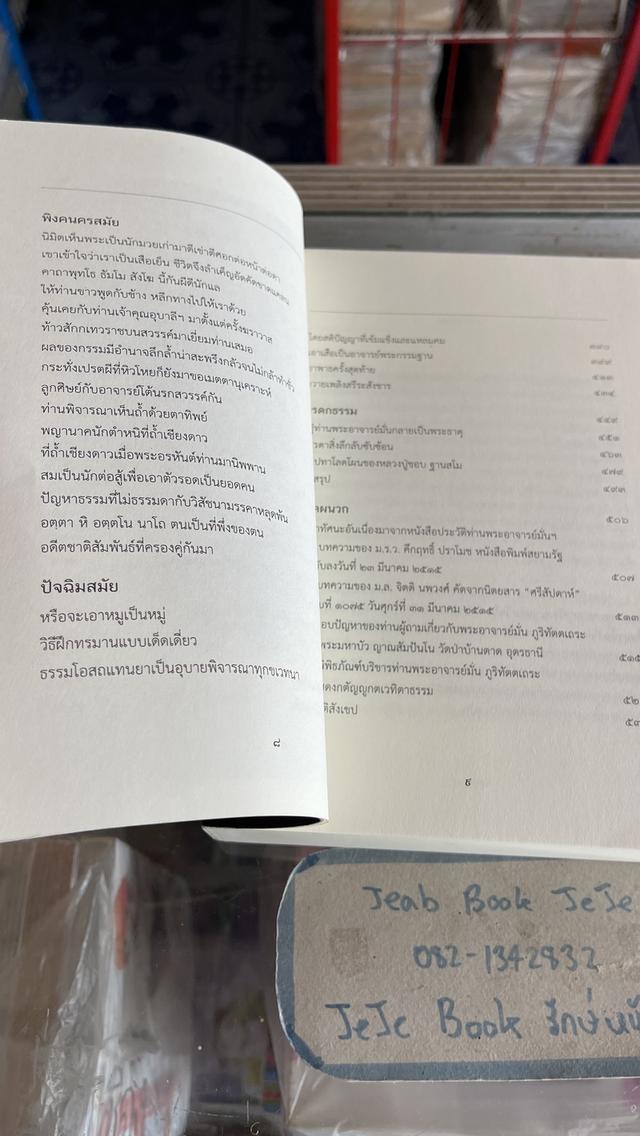 พิงคนครสมัย
นิมิตเห็นพระเป็นนักมวยเก่ามาตีเข่าตีศอกต่อหน้าต่อตา
เขาเข้าใจว่าเราเป็นเสือเย็น ชีวิตจึงลำเค็ญอัตคัดขาดแคลน
คาถาพุทโธ ธัมโม สังโฆ นี้กันผีดีนักแล
ให้ท่านขาวพูดกับช้าง หลีกทางไปให้เราด้วย
คุ้นเคยกับท่านเจ้าคุณอุบาลีฯ มาตั้งแต่ครั้งฆราวาส
ท้าวสักกเทวราชบนสวรรค์มาเยี่ยมท่านเสมอ
ผลของกรรมมีอำนาจลึกล้ำน่าสะพรึงกลัวจนไม่กล้าทำชั่ว
กระทั่งเปรตผีที่หิวโหยก็ยังมาขอเมตตานุเคราะห์
ลูกศิษย์กับอาจารย์โต้นรกสวรรค์กัน
ท่านพิจารณาเห็นถ้ำด้วยตาทิพย์
พญานาคนักตำหนิที่ถ้ำเชียงดาว
ที่ถ้ำเชียงดาวเมื่อพระอรหันต์ท่านมานิพพาน
สมเป็นนักต่อสู้เพื่อเอาตัวรอดเป็นยอดคน
ปัญหาธรรมที่ไม่ธรรมดากับวิสัชนามรรคาหลุดพ้น
อตฺตา หิ อตฺตโน นาโถ ตนเป็นที่พึ่งของตน
อดีตชาติสัมพันธ์ที่ครองคู่กันมา
ปัจฉิมสมัย
หรือจะเอาหมูเป็นหมู่
วิธีฝึกทรมานแบบเด็ดเดี่ยว
ธรรมโอสถแทนยาเป็นอุบายพิจารณาทุกขเวทนา
๘
โดยสติปัญญาที่เข้มแข็งและแหลมคม
เอาเสือเป็นอาจารย์พระกรรมฐาน
าพาธครั้งสุดท้าย
๔๑๓
วายเพลิงศรีระสังขาร
๔๓๔
รคกธรรม
๔๔๙
ท่านพระอาจารย์มั่นกลายเป็นพระธาตุ
๔๕๑
รคาสิ่งลึกลับซับซ้อน
๔๖๓
ปทาโลดโผนของหลวงปู่ชอบ ฐานสโม
๔๗๙
สรุป
๔๙๓
ผนวก
๕๐๖
าทัศนะอันเนื่องมาจากหนังสือประวัติท่านพระอาจารย์มั่นฯ
บทความของ ม.ร.ว. คึกฤทธิ์ ปราโมช หนังสือพิมพ์สยามรัฐ
บลงวันที่ ๒๓ มีนาคม ๒๕๑๕
๕๐๗
ทความของ ม.ล. จิตติ นพวงศ์ คัดจากนิตยสาร "ศรีสัปดาห์"
บที่ ๑๐๗๕ วันศุกร์ที่ ๓๑ มีนาคม ๒๕๑๕
๕๑๓
อบปัญหาของท่านผู้ถามเกี่ยวกับพระอาจารย์มั่น ภูริทัตตเถระ
พระมหาบัว ญาณสัมปันโน วัดป่าบ้านตาด อุดรธานี
๕๑๕
พิธภัณฑ์บริขารท่านพระอาจารย์มั่น ภูริทัตตเถระ
ดงกตัญญูกตเวทิตาธรรม
๕๒
ติสังเขป
๕๓
๙
Jeab Book JeJe
082-1342832
JeJe Book รักษ์หนั